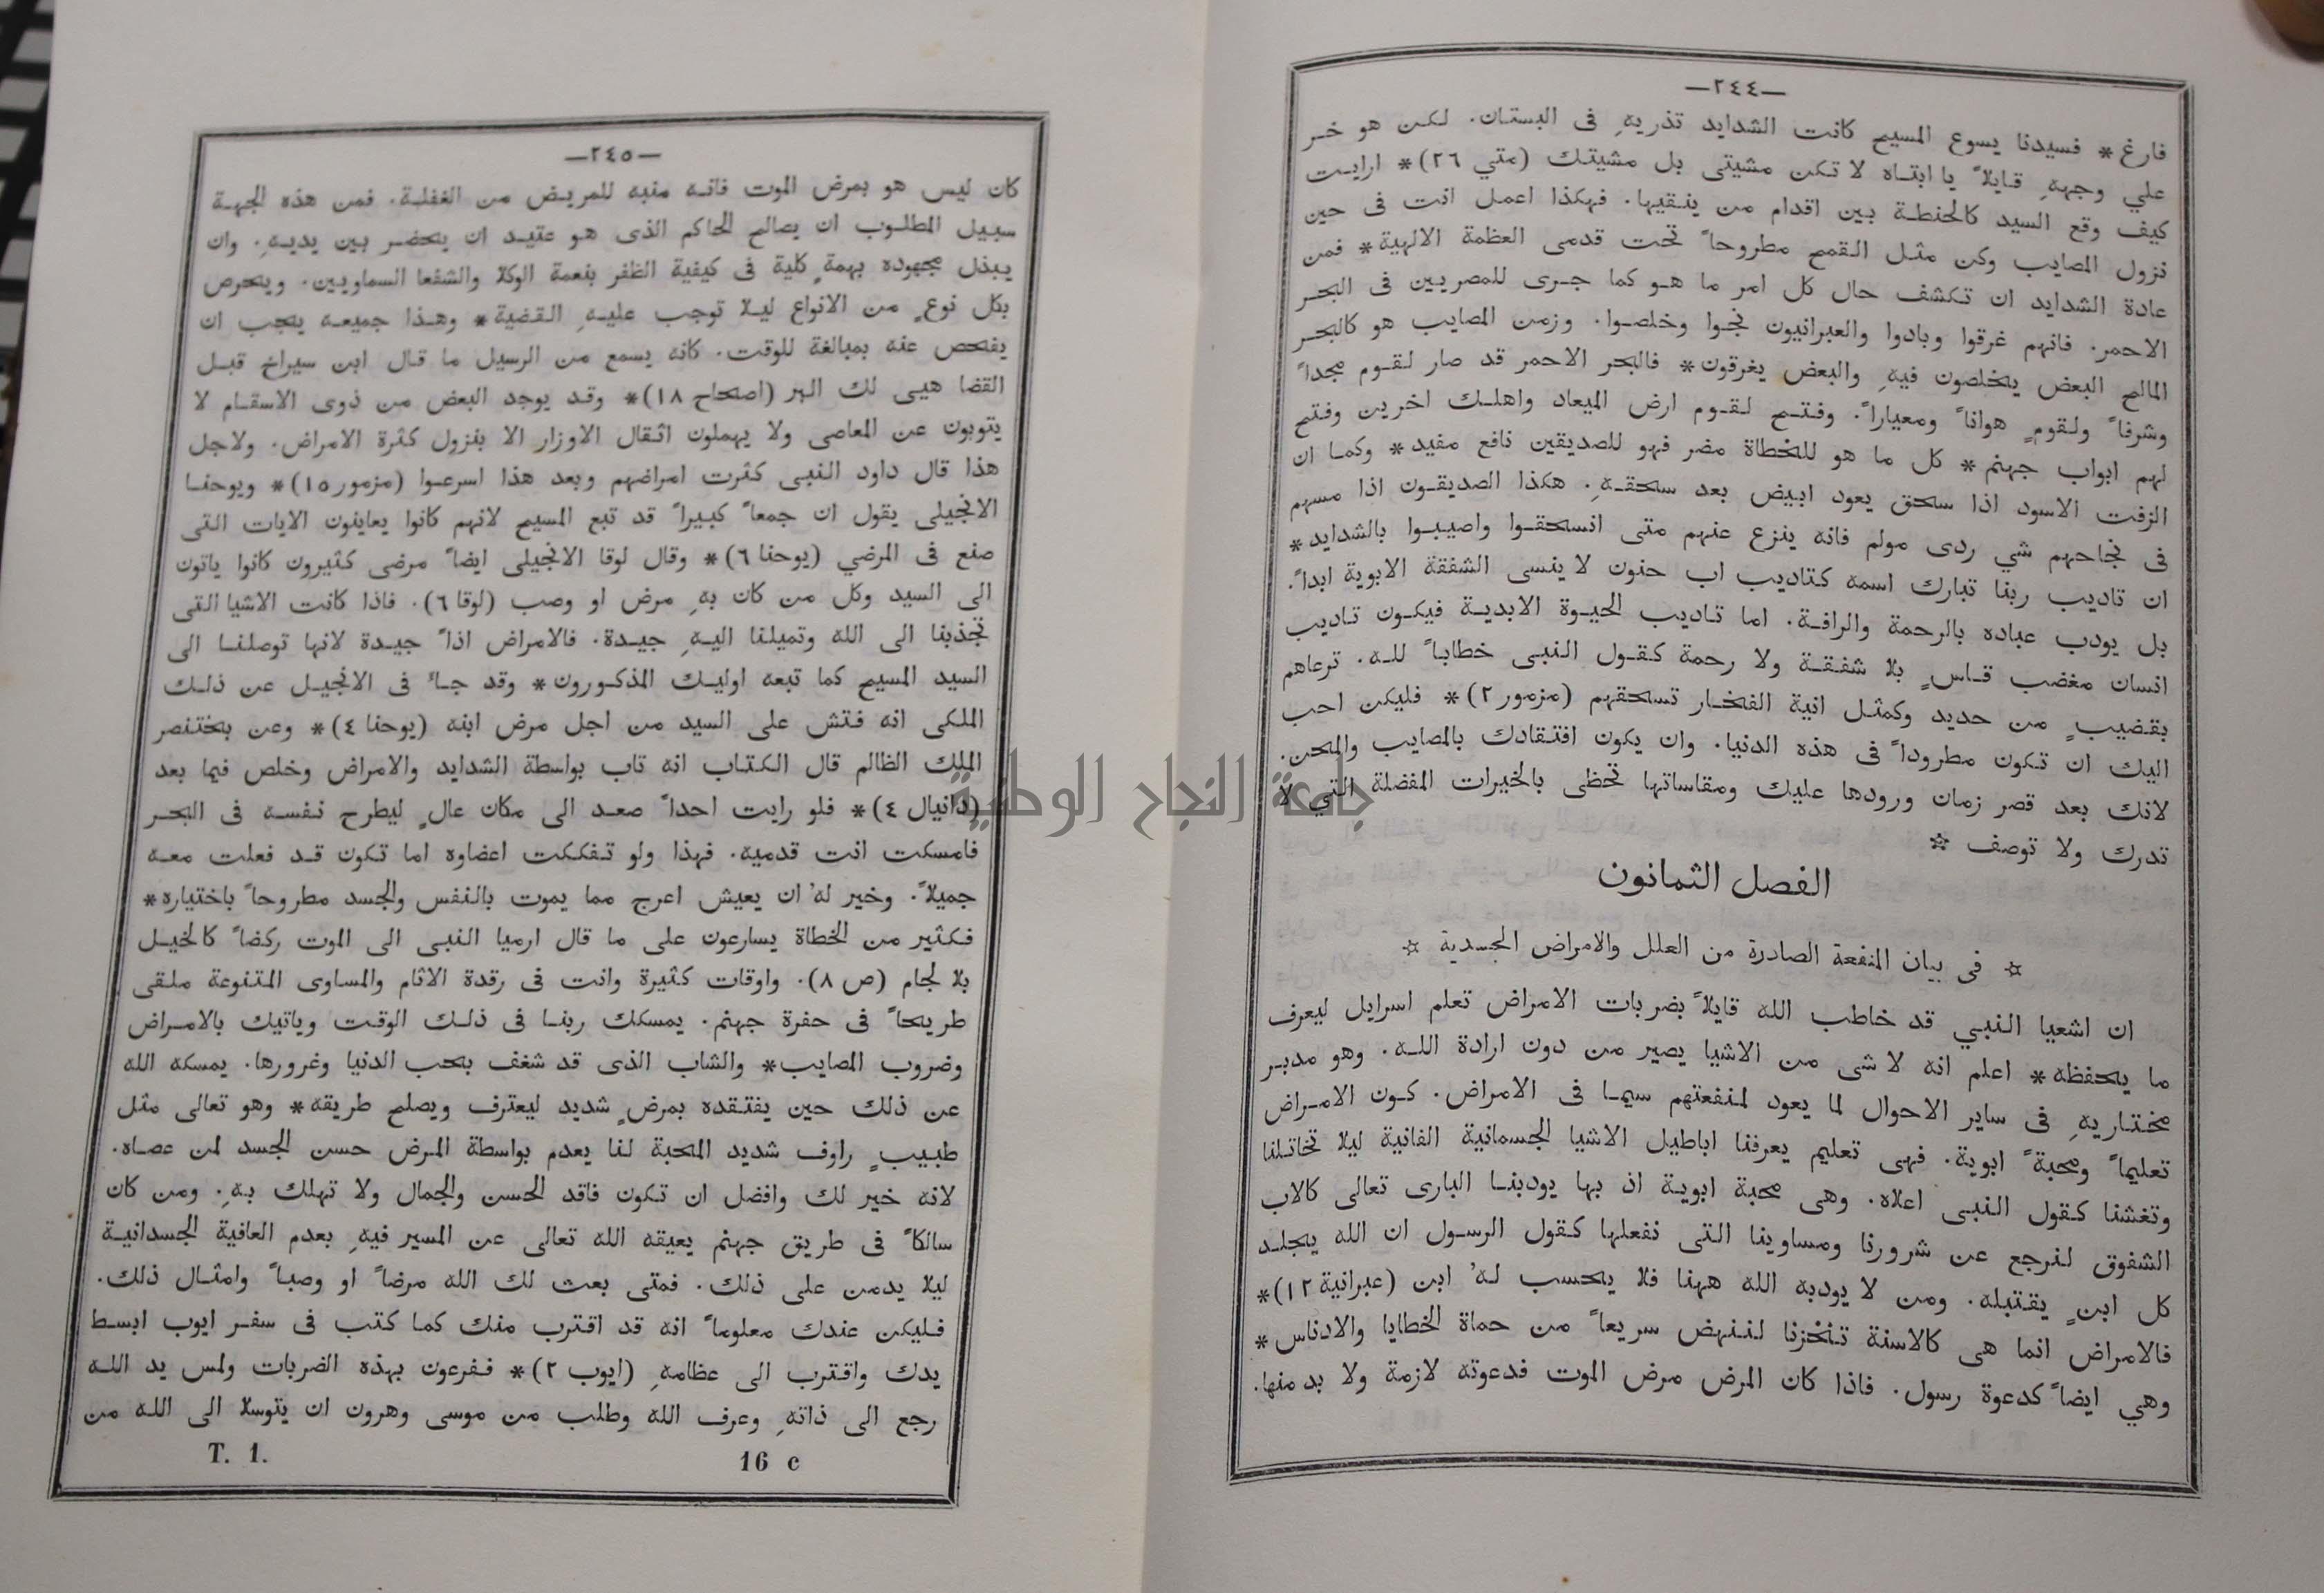 —٢٤٤—
فارغ* فسيدنا يسوع المسيح كانت الشدايد تذريهِ فى البستان. لكن هو خر
علي وجههِ قايلاً يا ابتاه لا تكن مشيتى بل مشيتك (متي ٢٦)* ارايت
كيف وقع السيد كالحنطة بين اقدام من ينقيها. فهكذا اعمل انت فى حين
نزول المصايب وكن مثل القمح مطروحاً تحت قدمى العظمة الالهية* فمن
عادة الشدايد ان تكشف حال كل امر ما هو كما جرى للمصريين فى البحر
الاحمر. فانهم غرقوا وبادوا والعبرانيون نجوا وخلصوا. وزمن المصايب هو كالبحر
المالح البعض يتخلصون فيهِ والبعض يغرقون* فالبحر الاحمر قد صار لقوم مجداً
وشرفاً ولقومٍ هواناً ومعياراً. وفتح لقوم ارض الميعاد واهلك اخرين وفتح
لهم ابواب جهنم* كل ما هو للخطاة مضر فهو للصديقين نافع مفيد* وكما ان
الزفت الاسود اذا سحق يعود ابيض بعد سحقهِ. هكذا الصديقون اذا مسهم
فى نجاحهم شي ردى مولم فانه ينزع عنهم متى انسحقوا واصيبوا بالشدايد*
ان تاديب ربنا تبارك اسمه كتاديب اب حنون لا ينسى الشفقة الابوية ابداً.
بل يودب عباده بالرحمة والرافة. اما تاديب الحيوة الابدية فيكون تاديب
انسان مغضب قاسٍ بلا شفقة ولا رحمة كقول النبى خطاباً لله. ترعاهم
بقضيبٍ من حديد وكمثل انية الفخار تسحقهم (مزمور ٢)* فليكن احب
اليك ان تكون مطروداً فى هذه الدنيا. وان يكون افتقادك بالمصايب والمحن.
لانك بعد قصر زمان ورودها عليك ومقاساتها تحظى بالخيرات المفضلة التي لا
تدرك ولا توصف ☆
الفصل الثمانون
☆ فى بيان المنفعة الصادرة من العلل والامراض الجسدية ☆
ان اشعيا النبي قد خاطب الله قايلاً بضربات الامراض تعلم اسرايل ليعرف
ما يحفظه* اعلم انه لا شى من الاشيا يصير من دون ارادة الله. وهو مدبر
مختاريهِ فى ساير الاحوال لما يعود لمنفعتهم سيما فى الامراض. كون الامراض
تعليماً ومحبةً ابوية. فهى تعليم يعرفنا اباطيل الاشيا الجسمانية الفانية ليلا تخاتلنا
وتغشنا كقول النبى اعلاه. وهى محبة ابوية اذ بها يودبنا البارى تعالى كالاب
الشفوق لنرجع عن شرورنا ومساوينا التى نفعلها كقول الرسول ان الله يجلد
كل ابنٍ يقتبله. ومن لا يودبه الله ههنا فلا يحسب له' ابن (عبرانية ١٢)*
فالامراض انما هى كالاسنة تنخزنا لننهض سريعاً من حماة الخطايا والادناس*
وهي ايضاً كدعوة رسول. فاذا كان المرض مرض الموت فدعوته لازمة ولا بد منها.
—٢٤٥—
كان ليس هو بمرض الموت فانه منبه للمريض من الغفلة. فمن هذه الجهة
سبيل المطلوب ان يصالح الحاكم الذى هو عتيد ان يتحضر بين يديهِ. وان
يبذل مجهوده بهمةٍ كلية فى كيفية الظفر بنعمة الوكلا والشفعا السماويين. ويتحرص
بكل نوعٍ من الانواع ليلا توجب عليهِ القضية* وهذا جميعه يتجب ان
يفتحص عنه بمبالغة للوقت. كانه يسمع من الرسيل ما قال ابن سيراخ قبل
القضا هيى لك البر (اصحاح ١٨)* وقد يوجد البعض من ذوى الاسقام لا
يتوبون عن المعاصى ولا يهملون اثقال الاوزار الا بنزول كثرة الامراض. ولاجل
هذا قال داود النبى كثرت امراضهم وبعد هذا اسرعوا (مزمور ١٥)* ويوحنا
الانجيلى يقول ان جمعاً كبيراً قد تبع المسيح لانهم كانوا يعاينون الايات التى
صنع فى المرضي (يوحنا ٦)* وقال لوقا الانجيلى ايضاً مرضى كثيرون كانوا ياتون
الى السيد وكل من كان بهِ مرض او وصب (لوقا ٦). فاذا كانت الاشيا التى
تجذبنا الى الله وتميلنا اليهِ جيدة. فالامراض اذاً جيدة لانها توصلنا الى
السيد المسيح كما تبعه اوليك المذكورون* وقد جاً فى الانجيل عن ذلك
الملكى انه فتش على السيد من اجل مرض ابنه (يوحنا ٤)* وعن بختنصر
الملك الظالم قال الكتاب انه تاب بواسطة الشدايد والامراض وخلص فيما بعد
(دانيال ٤)* فلو رايت احداً صعد الى مكان عالٍ ليطرح نفسه فى البحر
فامسكت انت قدميه. فهذا ولو تفككت اعضاوه اما تكون قد فعلت معه
جميلاً. وخير له' ان يعيش اعرج مما يموت بالنفس والجسد مطروحاً باختياره*
فكثير من الخطاة يسارعون على ما قال ارميا النبى الى الموت ركضاً كالخيل
بلا لجام (ص ٨). واوقات كثيرة وانت فى رقدة الاثام والمساوى المتنوعة ملقى
طريحاً فى حفرة جهنم. يمسكك ربنا فى ذلك الوقت وياتيك بالامراض
وضروب المصايب* والشاب الذى قد شغف بحب الدنيا وغرورها. يمسكه الله
عن ذلك حين يفتقده بمرضٍ شديد ليعترف ويصلح طريقه* وهو تعالى مثل
طبيبٍ راوف شديد المحبة لنا يعدم بواسطة المرض حسن الجسد لمن عصاه.
لانه خير لك وافضل ان تكون فاقد الحسن والجمال ولا تهلك بهِ. ومن كان
سالكاً فى طريق جهنم يعيقه الله تعالى عن المسير فيهِ بعدم العافية الجسدانية
ليلا يدمن على ذلك. فمتى بعث لك الله مرضاً او وصباً وامثال ذلك.
فليكن عندك معلوماً انه قد اقترب منك كما كتب فى سفر ايوب ابسط
يدك واقترب الى عظامهِ (ايوب ٢)* ففرعون بهذه الضربات ولمس يد الله
رجع الى ذاتهِ وعرف الله وطلب من موسى وهرون ان يتوسلا الى الله من
T. 1. 16 c
جامعة النجاح الوطنية